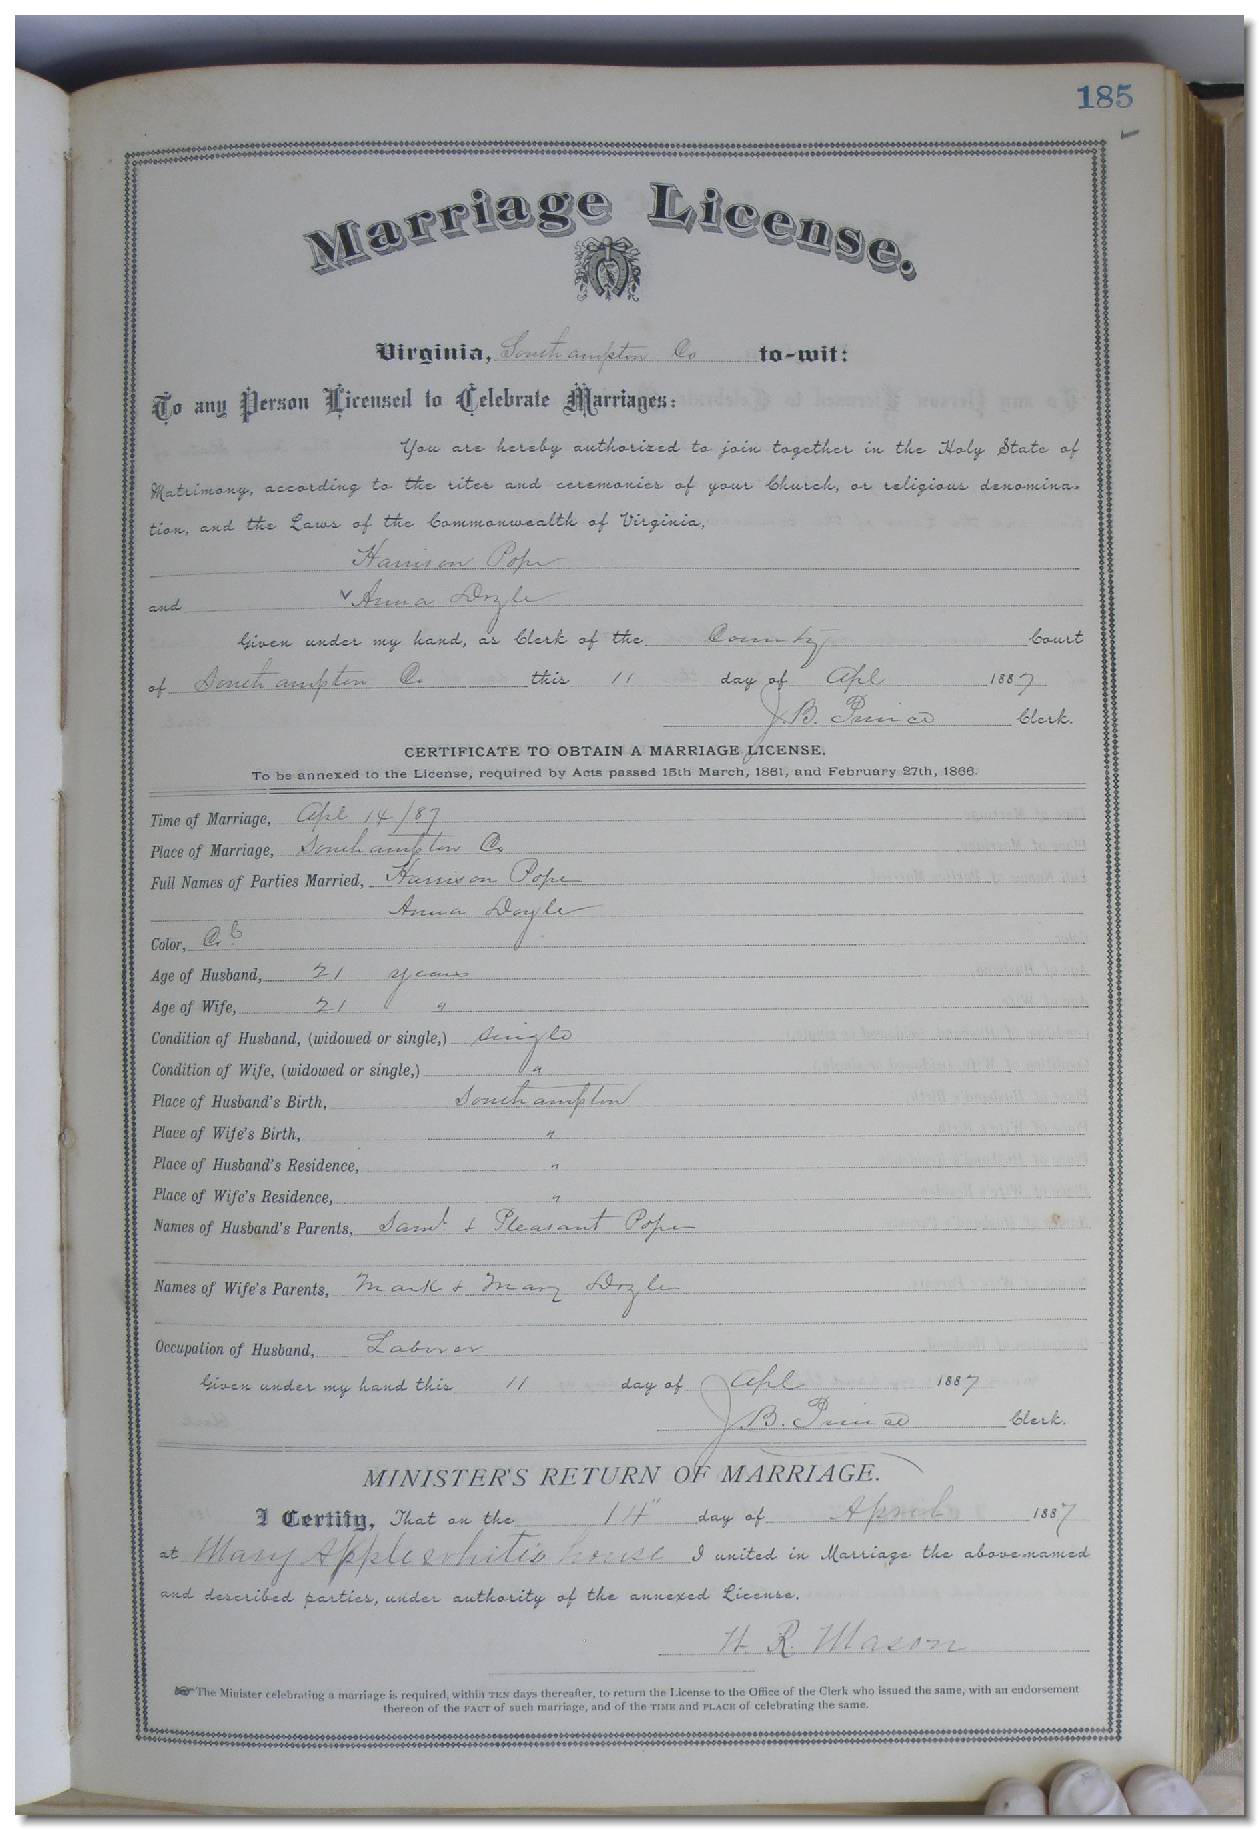 185
Marriage License.
Virginia, Southampton Co to-wit:
To any Person Licensed to Celebrate Marriages:
You are hereby authorized to join together in the Holy State of
Matrimony, according to the rites and ceremonies of your Church, or religious denomina-
tion, and the Laws of the Commonwealth of Virginia,
Harrison Pope
and Anna Doyle
Given under my hand, as Clerk of the County Court
of Southampton Co this 11 day of Apl 1887
J. B. Prince Clerk.
CERTIFICATE TO OBTAIN A MARRIAGE LICENSE.
To be annexed to the License, required by Acts passed 15th March, 1861, and February 27th, 1866.
Time of Marriage, Apl 14/87
Place of Marriage, Southampton Co
Full Names of Parties Married, Harrison Pope
Anna Doyle
Color,
Age of Husband, 21 years
Age of Wife, 21 "
Condition of Husband, (widowed or single,) single
Condition of Wife, (widowed or single,) "
Place of Husband's Birth, Southampton
Place of Wife's Birth, "
Place of Husband's Residence, "
Place of Wife's Residence, "
Names of Husband's Parents, Saml. & Pleasant Pope
Names of Wife's Parents, Mark & Mary Doyle
Occupation of Husband, Laborer
Given under my hand this 11 day of Apl 1887
J. B. Prince Clerk.
MINISTER'S RETURN OF MARRIAGE.
I Certify, That on the 14" day of April 1887
at Mary Applewhite's house I united in Marriage the above-named
and described parties, under authority of the annexed License.
H. R. Mason
☞ The Minister celebrating a marriage is required, within TEN days thereafter, to return the License to the Office of the Clerk who issued the same, with an endorsement
thereon of the FACT of such marriage, and of the TIME and PLACE of celebrating the same.